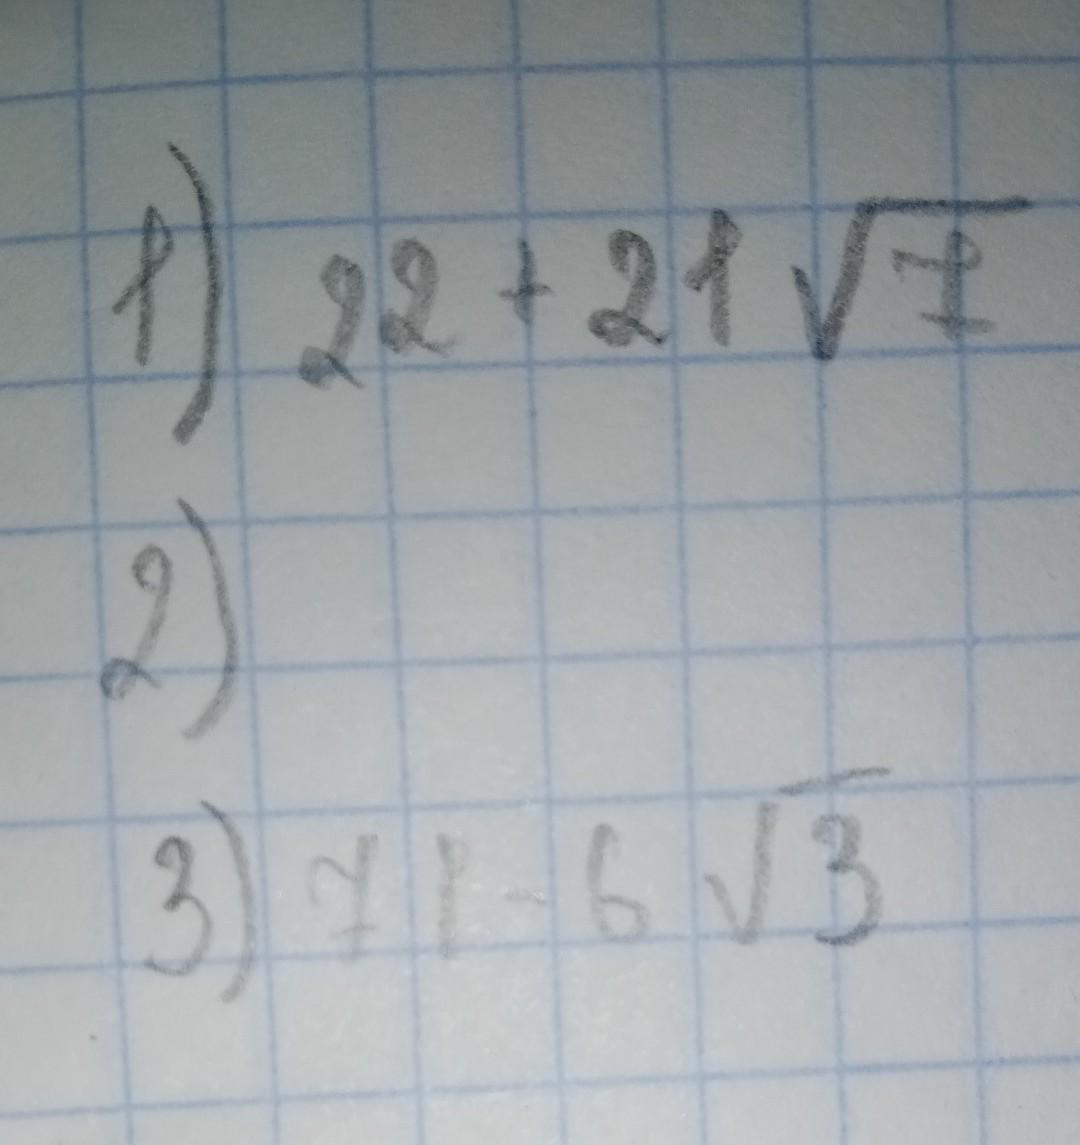 1) 22 + 21√7
2)
3) 71 - 6√3